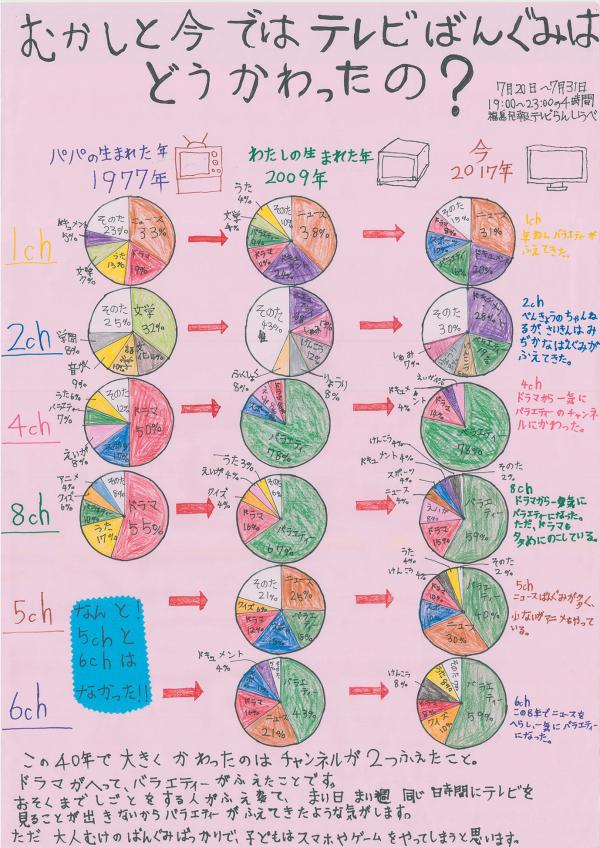 むかしと今ではテレビばんぐみは
どうかわったの?
7月20日~7月31日
19:00~23:00の4時間
パパの生まれた年
1977年
わたしの生まれた年
2009年
今
2017年
1ch
そのた
23%
ニュース
33%
ドラマ
19%
うた
13%
文学
7%
ドキュメント
5%
うた
4%
文学
4%
そのた
10%
ニュース
38%
バラエティー
ドラマ
そのた
15%
ニュース
31%
20%
スポーツ
10%
ドラマ
8%
1ch
バラエティーが
ふえてきた。
2ch
そのた
25%
文学
32%
学問
8%
音がく
9%
そのた
43%
けんこう
12%
そのた
30%
しゅみ
7%
2ch
べんきょうのちゃんね
るが、さいきんは、み
ぢかなばんぐみが
ふえてきた。
4ch
うた6%
バラエティー
7%
そのた
12%
ドラマ
50%
えいが
8%
ふくしゅう
8%
りょうり
8%
バラエティ
78%
ドキュメント
4%
えいが4%
バラエティ
78%
4ch
ドラマから一気に
バラエティーのチャンネ
ルにかわった。
8ch
アニメ
4%
クイズ
6%
そのた
8%
バラエティー
10%
うた
17%
ドラマ
55%
うた3%
えいが4%
クイズ
4%
そのた
6%
ドラマ
16%
バラエティー
67%
けんこう4%
ドキュメント4%
スポーツ
4%
ニュース
4%
そのた
2%
バラエティー
59%
ドラマ
15%
8ch
ドラマから一気に
バラエティーになった。
ただ、ドラマも
多めにのこしている。
5ch
なんと!
5chと
6chは
なかった!!
そのた
21%
ニュース
25%
クイズ6%
ドラマ
12%
バラエティ
うた
4%
けんこう
4%
そのた
2%
バラエティー
40%
ニュース
30%
5ch
ニュースばんぐみが多く、
少ないがアニメもやって
いる。
6ch
ドキュメント
4%
バラエティー
43%
ニュース
21%
ドラマ
16%
けんこう
8%
うた8%
バラエティー
59%
クイズ
10%
ドラマ
8%
6ch
この8年でニュースを
へらし、一気にバラエティー
になった。
この40年で大きくかわったのはチャンネルが2つふえたこと。
ドラマがへって、バラエティーがふえたことです。
おそくまでしごとをする人がふえて、まい日まい週同じ時間にテレビを
見ることが出きないからバラエティーがふえてきたような気がします。
ただ大人むけのばんぐみばっかりで、子どもはスマホやゲームをやってしまうと思います。